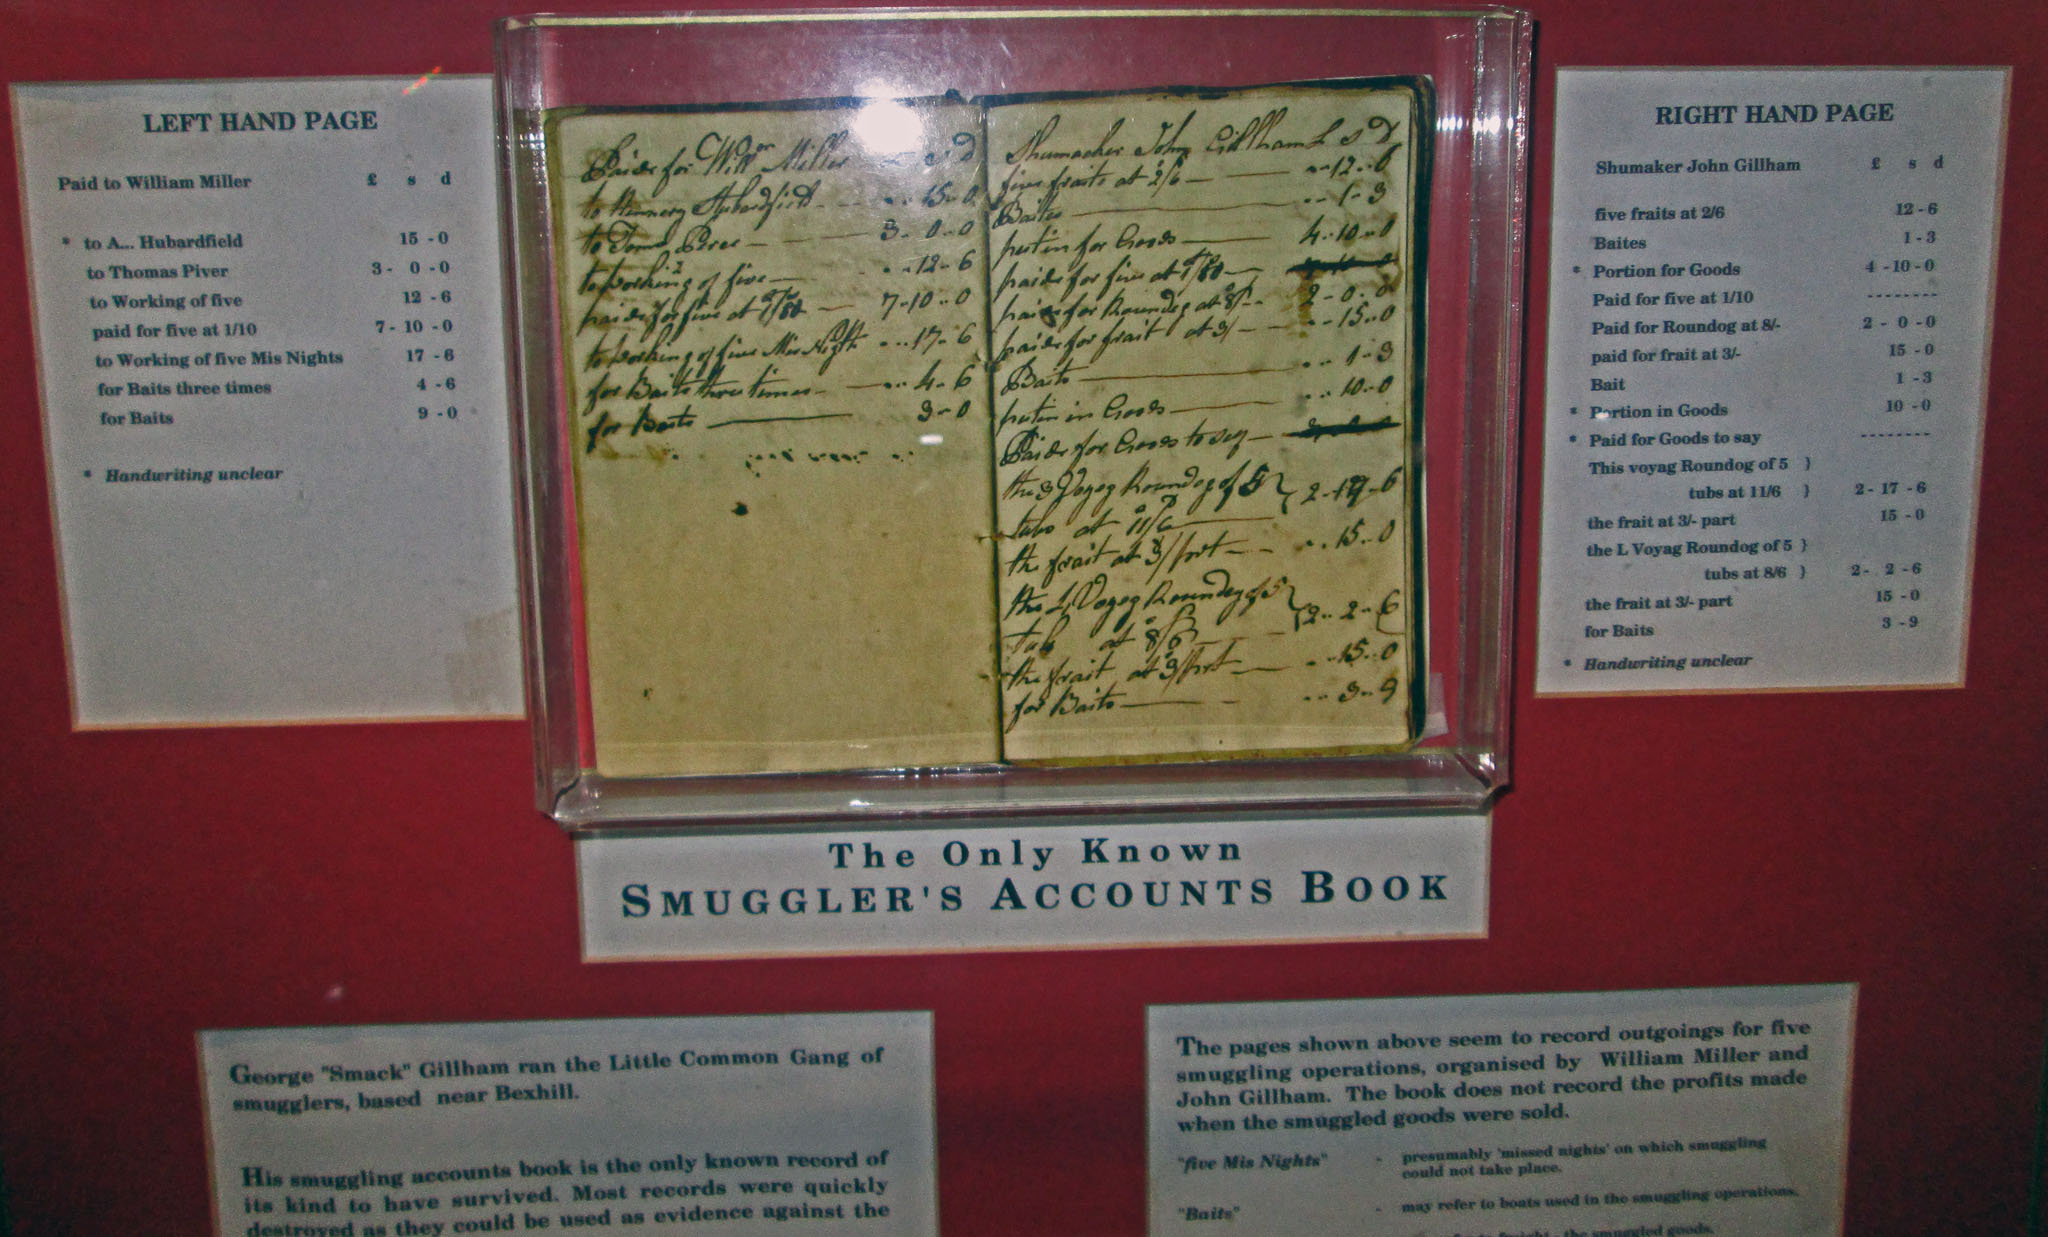 LEFT HAND PAGE
Paid to William Miller £ s d
* to A... Hubardfield 15 - 0
to Thomas Piver 3 - 0 - 0
to Working of five 12 - 6
paid for five at 1/10 7 - 10 - 0
to Working of five Mis Nights 17 - 6
for Baits three times 4 - 6
for Baits 9 - 0
* Handwriting unclear
Paide for Will Miller £ s D
to Hubardfield 15 - 0
to 3 - 0 - 0
to Working of five 12 - 6
paide for five at 7 - 10 - 0
to Working of five Mis Night 17 - 6
for Baits three times 4 - 6
for Baits 9 - 0
Shumacker John Gillham £ s D
five fraits at 2/6 12 - 6
Baites 1 - 3
for Goods 4 - 10 - 0
paide for five at
paide for Roundog at 8/- 2 - 0 - 0
paide for frait at 3/- 15 - 0
Baits 1 - 3
in Goods 10 - 0
Paide for Goods to say
the 3 Voyag Roundog of 5 } 2 - 17 - 6
tubs at 11/6
the frait at 3/ part 15 - 0
the 4 Voyag Roundog of 5 } 2 - 2 - 6
Tubs at 8/6
the frait at 3/ part 15 - 0
for Baits 3 - 9
RIGHT HAND PAGE
Shumaker John Gillham £ s d
five fraits at 2/6 12 - 6
Baites 1 - 3
* Portion for Goods 4 - 10 - 0
Paid for five at 1/10 --------
Paid for Roundog at 8/- 2 - 0 - 0
paid for frait at 3/- 15 - 0
Bait 1 - 3
* Portion in Goods 10 - 0
* Paid for Goods to say --------
This voyag Roundog of 5 }
tubs at 11/6 } 2 - 17 - 6
the frait at 3/- part 15 - 0
the L Voyag Roundog of 5 }
tubs at 8/6 } 2 - 2 - 6
the frait at 3/- part 15 - 0
for Baits 3 - 9
* Handwriting unclear
The Only Known
SMUGGLER'S ACCOUNTS BOOK
George "Smack" Gillham ran the Little Common Gang of
smugglers, based near Bexhill.
His smuggling accounts book is the only known record of
its kind to have survived. Most records were quickly
destroyed as they could be used as evidence against the
The pages shown above seem to record outgoings for five
smuggling operations, organised by William Miller and
John Gillham. The book does not record the profits made
when the smuggled goods were sold.
"five Mis Nights" - presumably 'missed nights' on which smuggling
could not take place.
"Baits" - may refer to boats used in the smuggling operations.
freight - the smuggled goods.